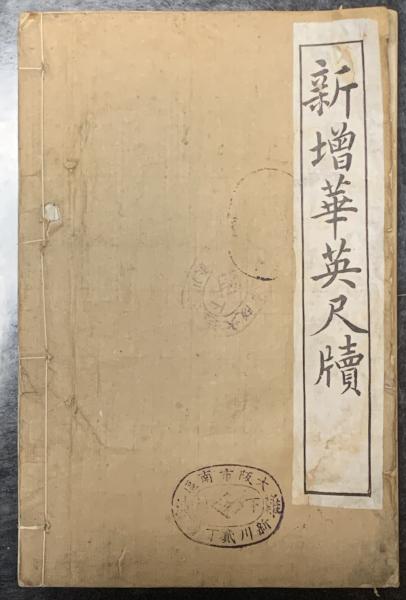 新增華英尺牘
大阪市南區
新川貳丁